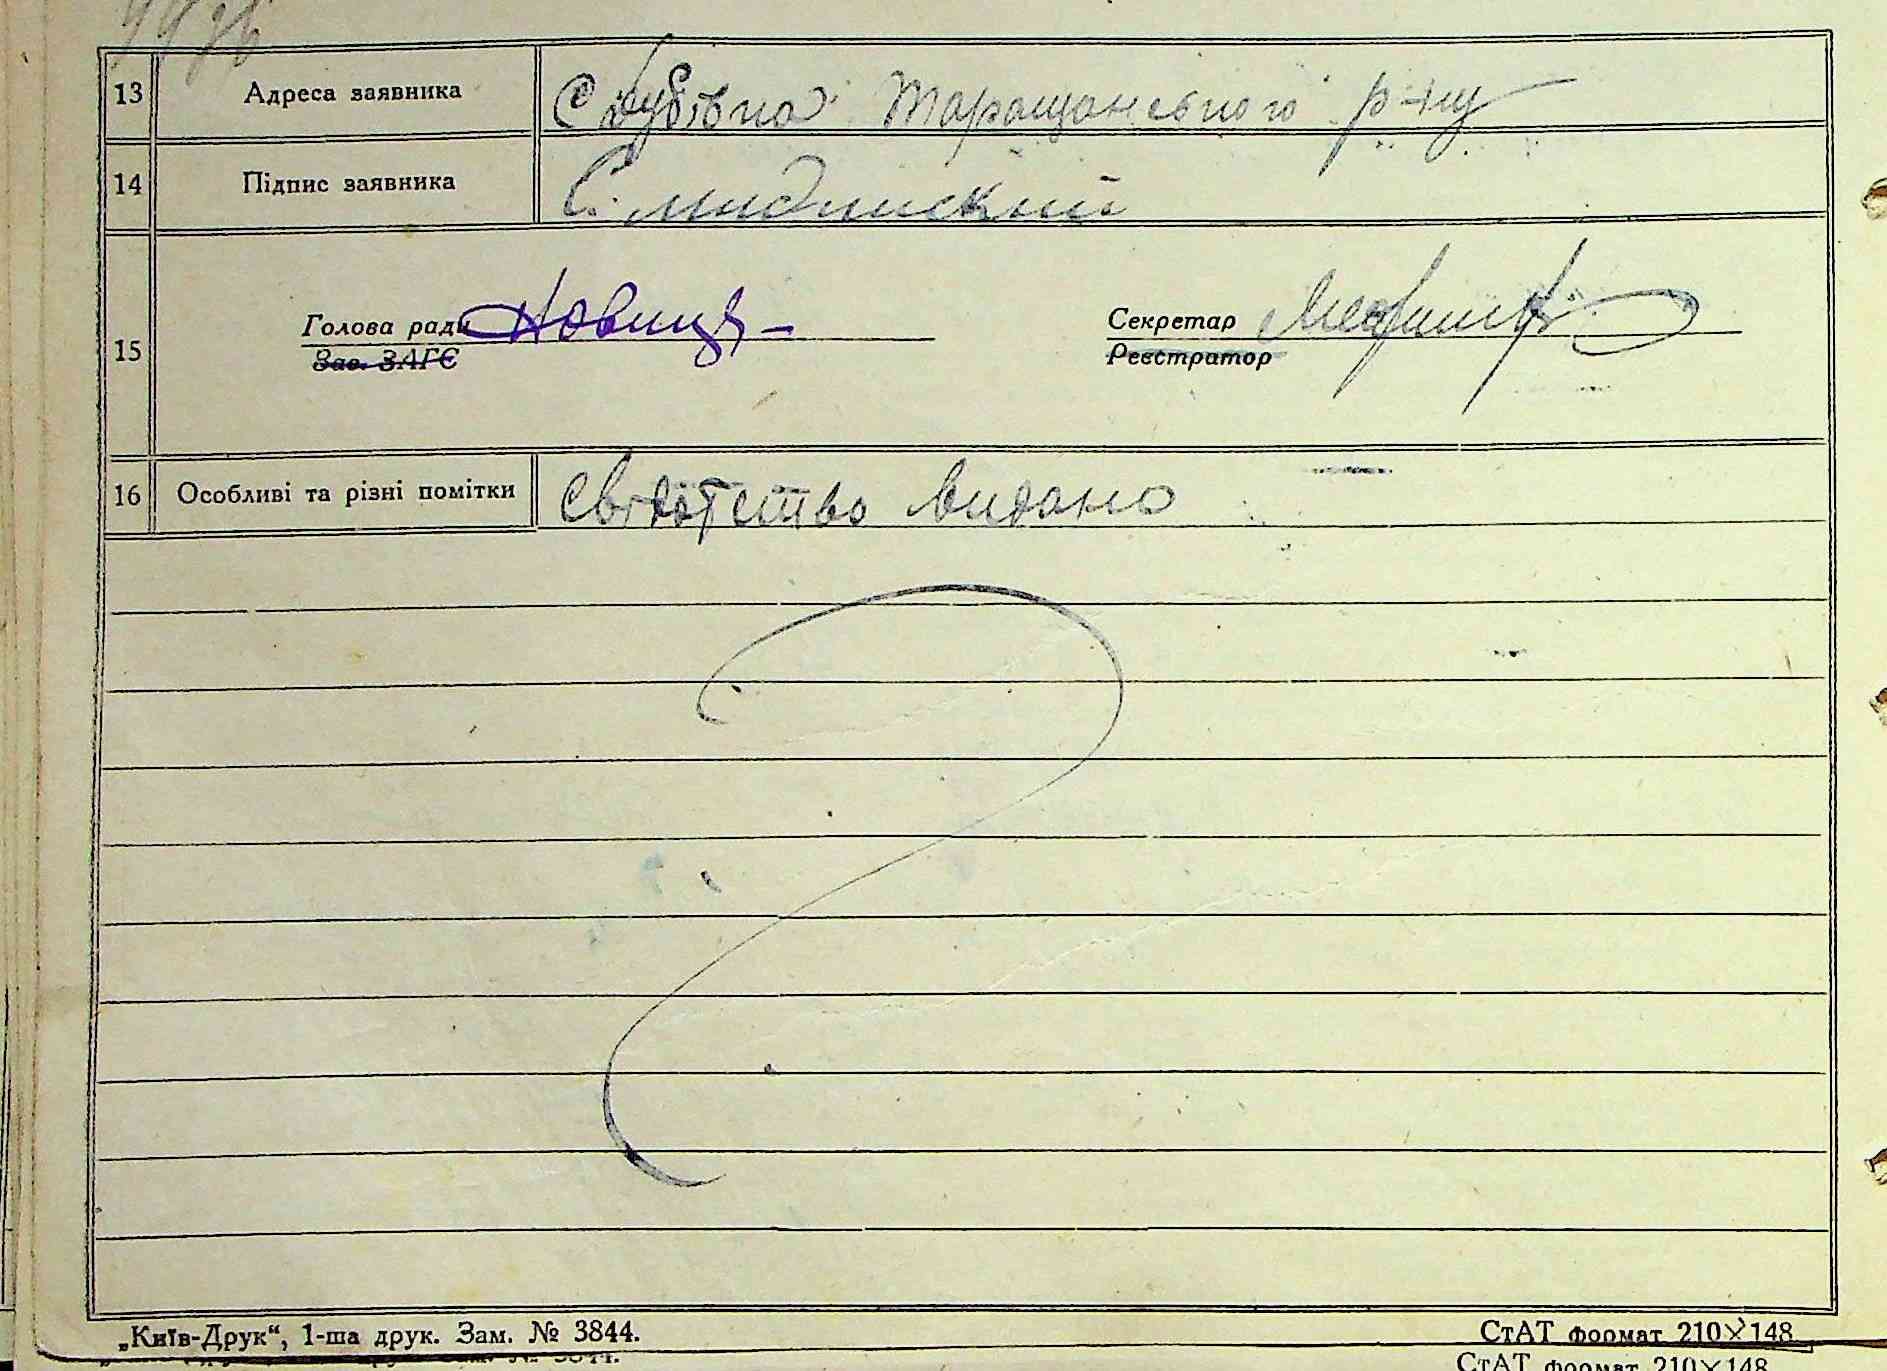 13 Адреса заявника с Дубівка Таращанського р-ну
14 Підпис заявника
15 Голова ради Новиц Секретар
Зав. ЗАГС Реєстратор
16 Особливі та різні помітки Свідотство видано
„Київ-Друк“, 1-ша друк. Зам. № 3844. СтАТ формат 210×148
СтАТ формат 210×148